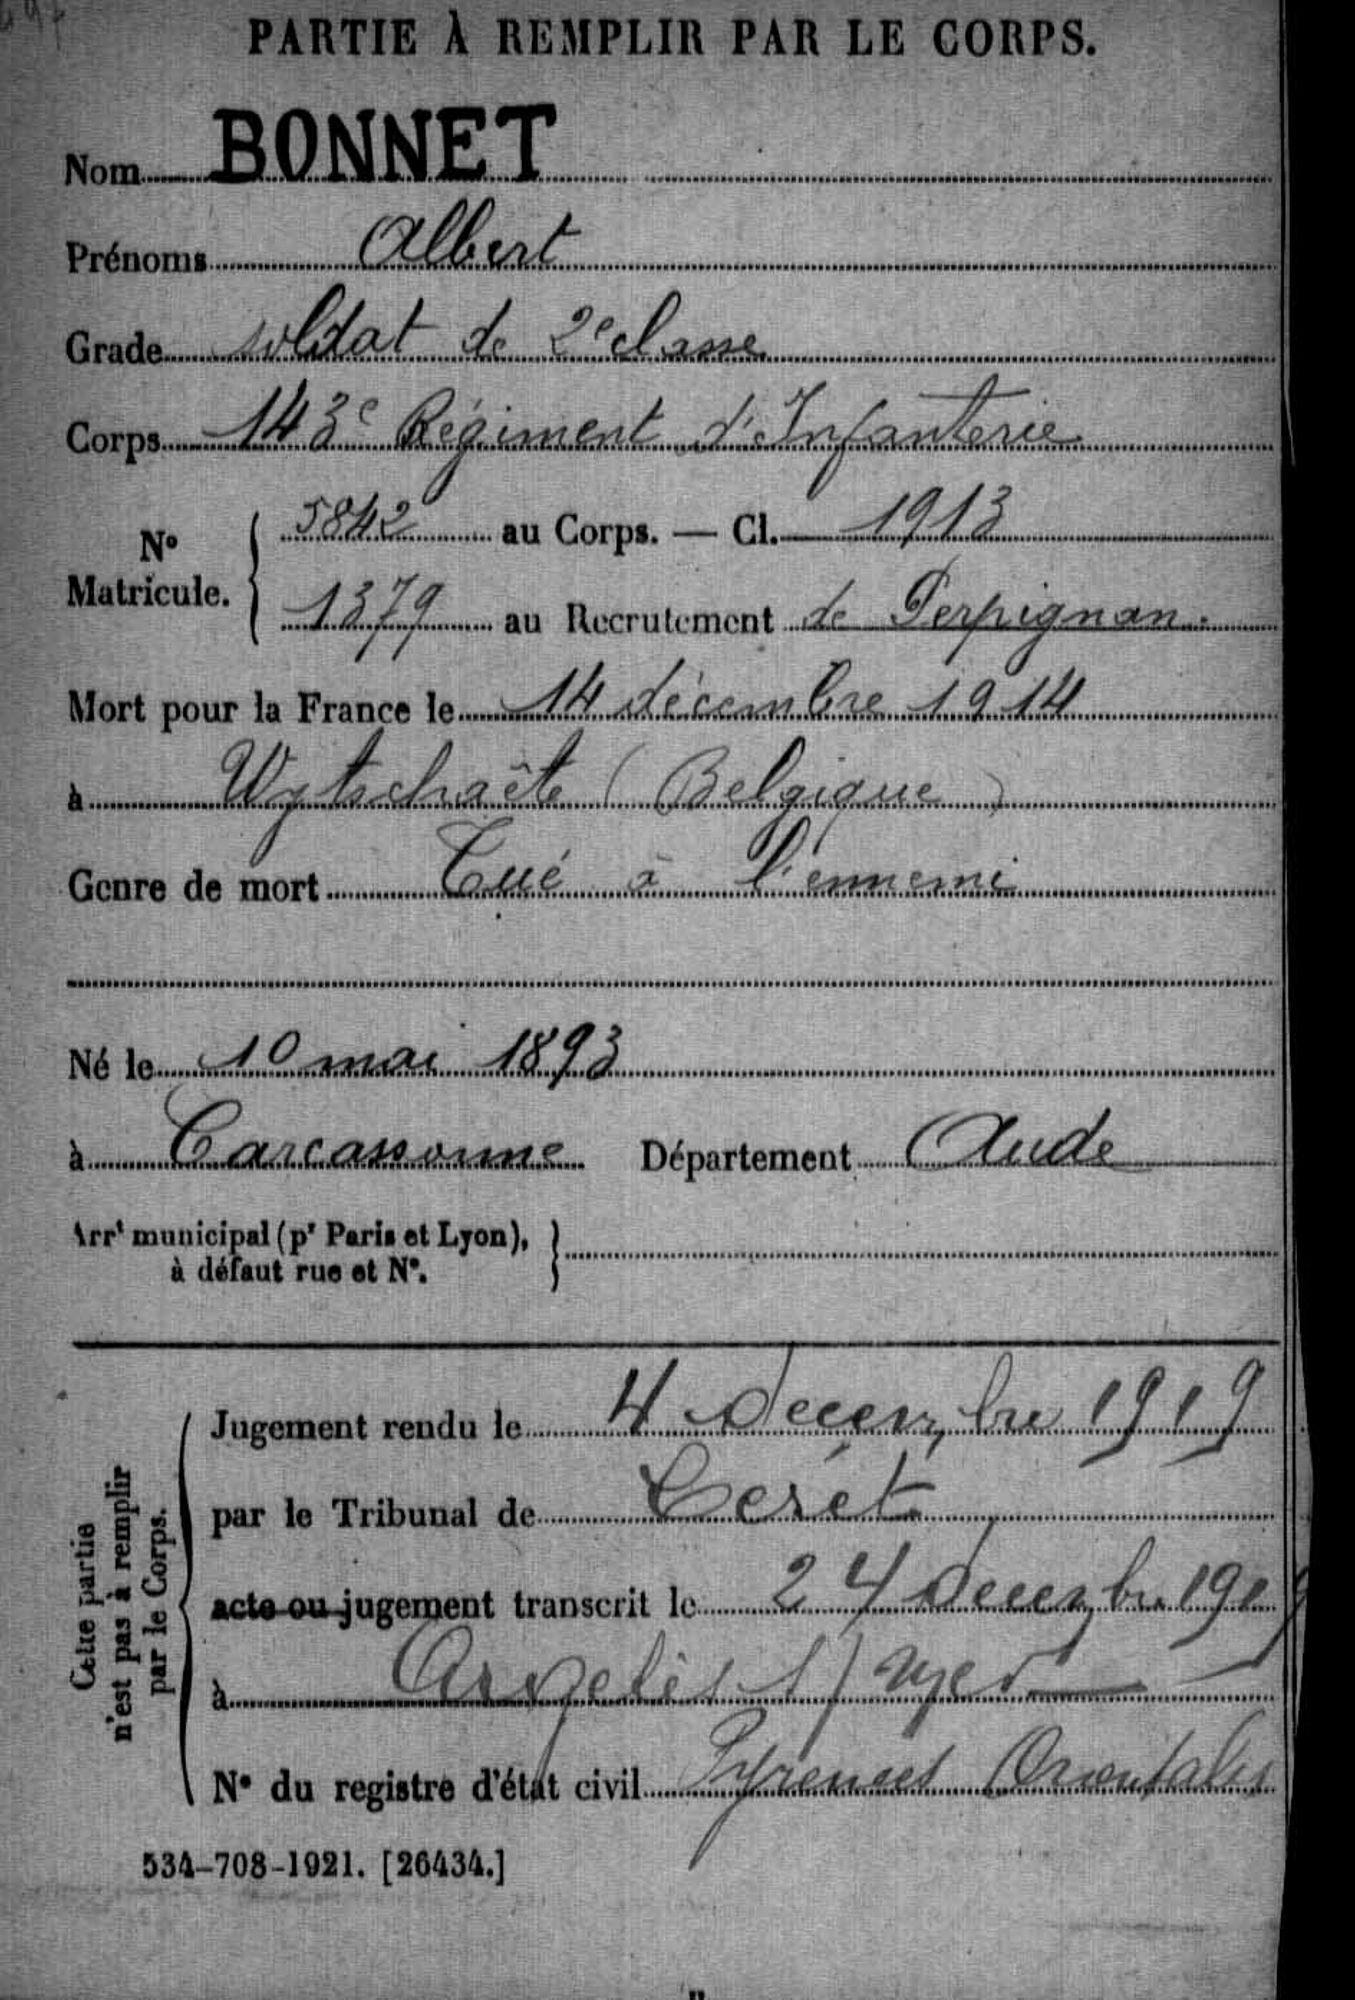 PARTIE À REMPLIR PAR LE CORPS.
Nom BONNET
Prénoms Albert
Grade soldat de 2e classe
Corps 143e Régiment d'Infanterie
N° Matricule. { 5842 au Corps. — Cl. 1913
1379 au Recrutement de Perpignan.
Mort pour la France le 14 décembre 1914
à Wytschaëte (Belgique)
Genre de mort Tué à l'ennemi
Né le 10 mai 1893
à Carcassonne Département Aude
Arrt municipal (pr Paris et Lyon), }
à défaut rue et N°.
Cette partie
n'est pas à remplir
par le Corps.
Jugement rendu le 4 decembre 1919
par le Tribunal de Céret
acte ou jugement transcrit le 24 decembre 1919
à Argelès s/ mer
N° du registre d'état civil Pyrenees Orientales
534-708-1921. [26434.]